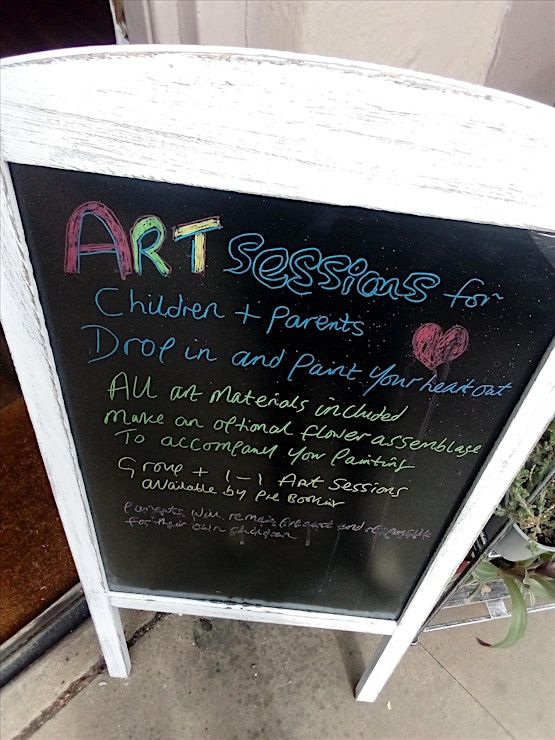 ART sessions for
Children + Parents
Drop in and paint your heart out
All art materials included
Make an optional flower assemblage
To accompany your painting
Group + 1-1 Art Sessions
available by Pre Bookin
Parents will remain present and responsible
for their own children